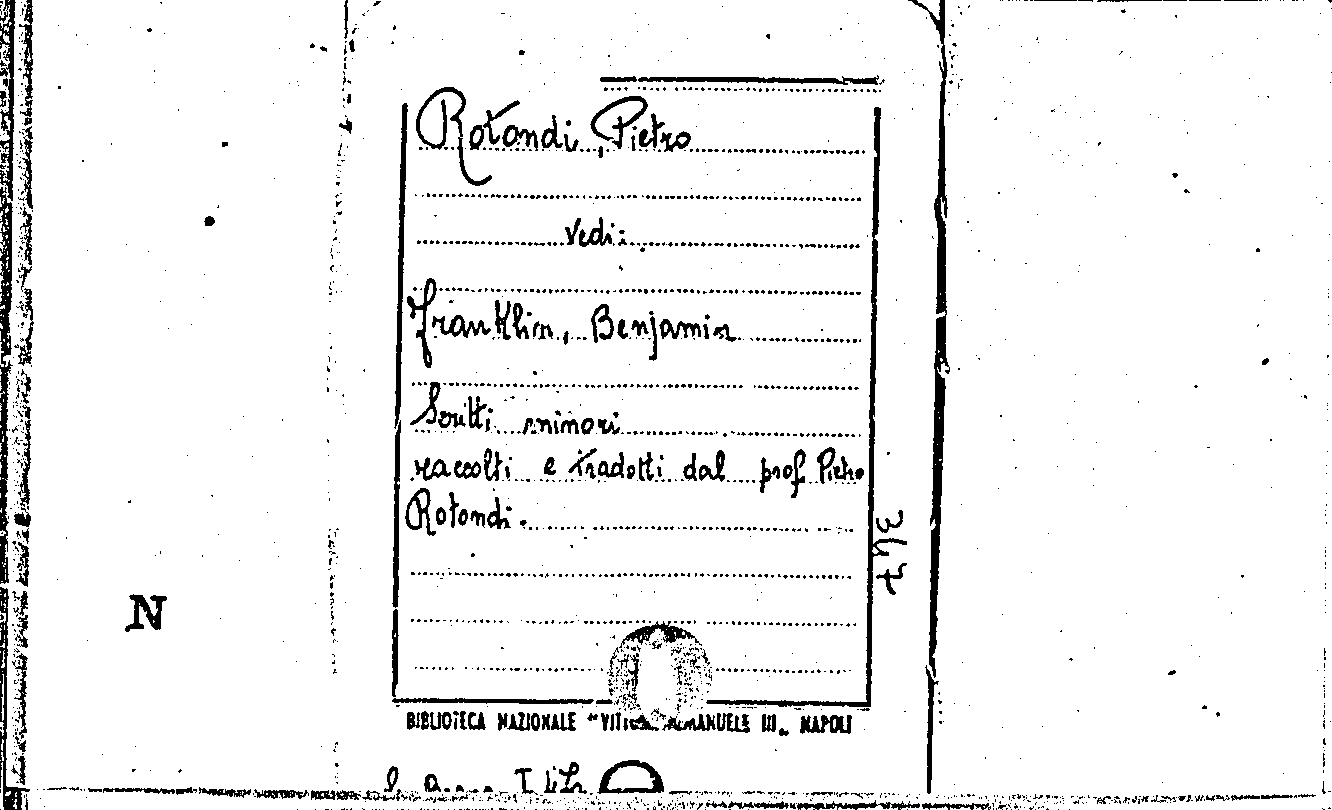 Rotondi, Pietro
Vedi:
Franklin, Benjamin
Scritti minori
raccolti e tradotti dal prof. Pietro
Rotondi.
347
N
BIBLIOTECA NAZIONALE "VITTORIO EMANUELE III„ NAPOLI